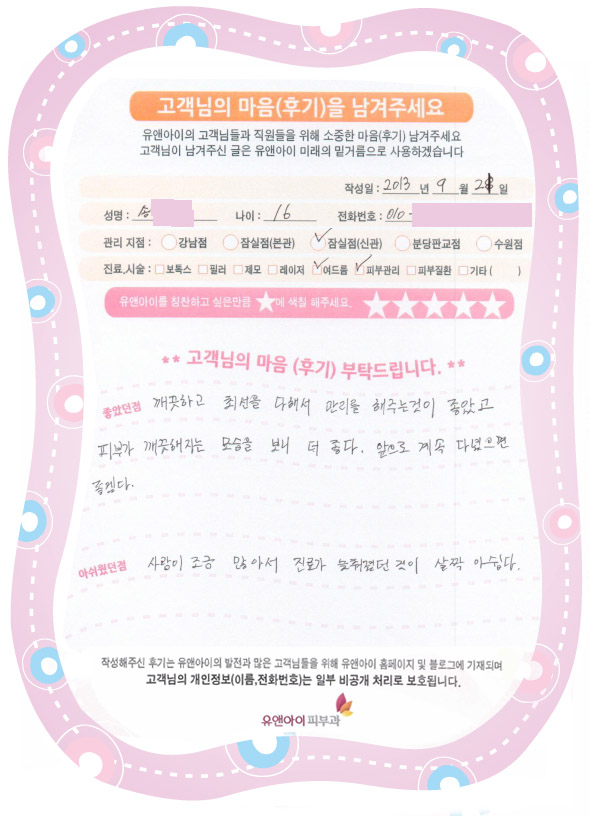 고객님의 마음(후기)을 남겨주세요
유앤아이의 고객님들과 직원들을 위해 소중한 마음(후기) 남겨주세요
고객님이 남겨주신 글은 유앤아이 미래의 밑거름으로 사용하겠습니다
작성일 : 2013 년 9 월 28 일
성명 : 나이 : 16 전화번호 : 010-
관리 지점 : 강남점 잠실점(본관) 잠실점(신관) 분당판교점 수원점
진료,시술 : 보톡스 필러 제모 레이저 여드름 피부관리 피부질환 기타 ( )
유앤아이를 칭찬하고 싶은만큼 ★에 색칠 해주세요. ★★★★★
** 고객님의 마음 (후기) 부탁드립니다. **
좋았던점 깨끗하고 최선을 다해서 관리를 해주는것이 좋았고
피부가 깨끗해지는 모습을 보니 더 좋다. 앞으로 계속 다녔으면
좋겠다.
아쉬웠던점 사람이 조금 많아서 진료가 늦춰졌던 것이 살짝 아쉽다.
작성해주신 후기는 유앤아이의 발전과 많은 고객님들을 위해 유앤아이 홈페이지 및 블로그에 기재되며
고객님의 개인정보(이름,전화번호)는 일부 비공개 처리로 보호됩니다.
유앤아이 피부과